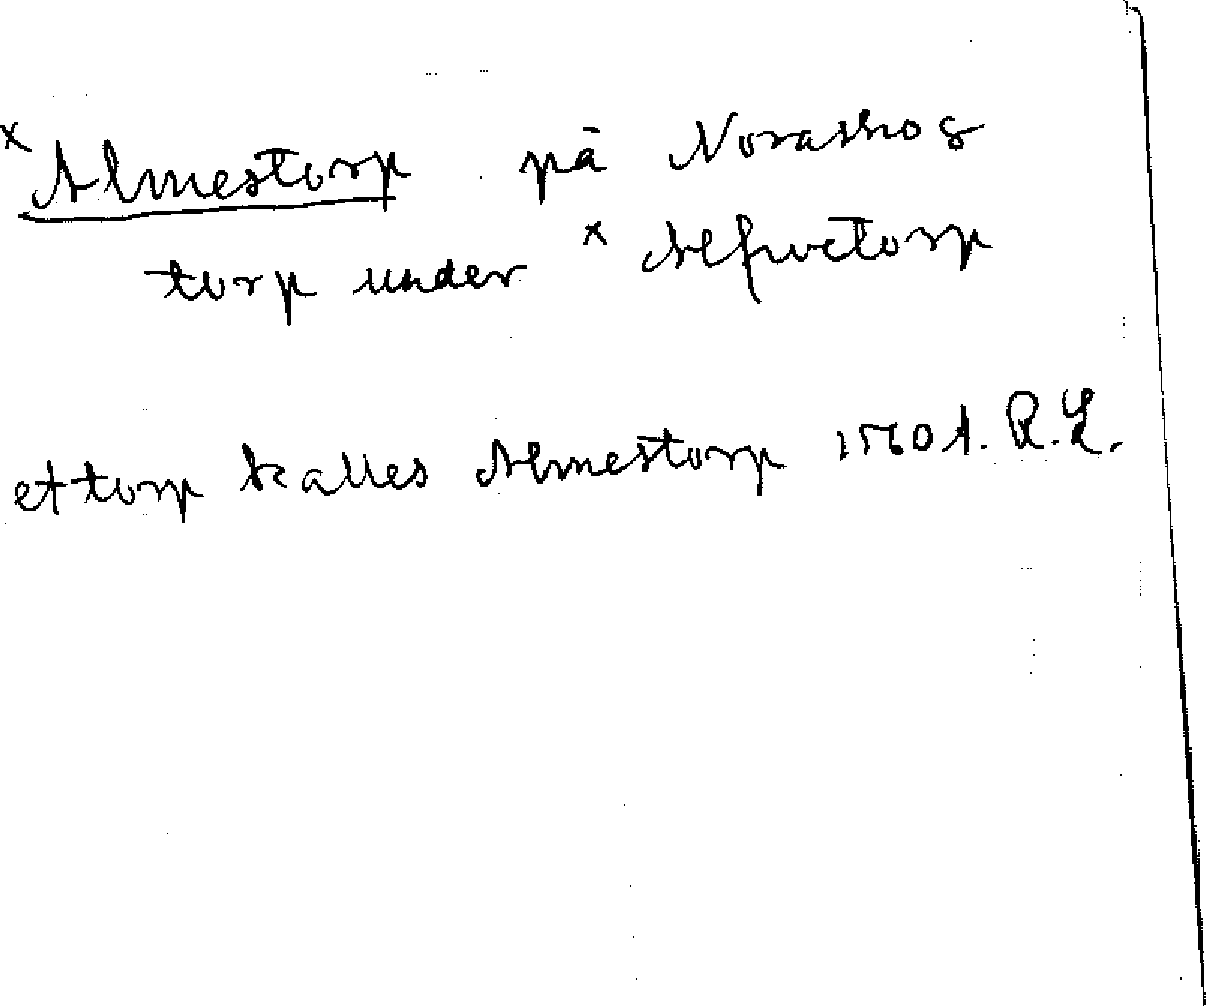 x Almestorp på Noraskog
torp under x Alfwetorp
et torp kalles Almestorp 1560 1. R.L.